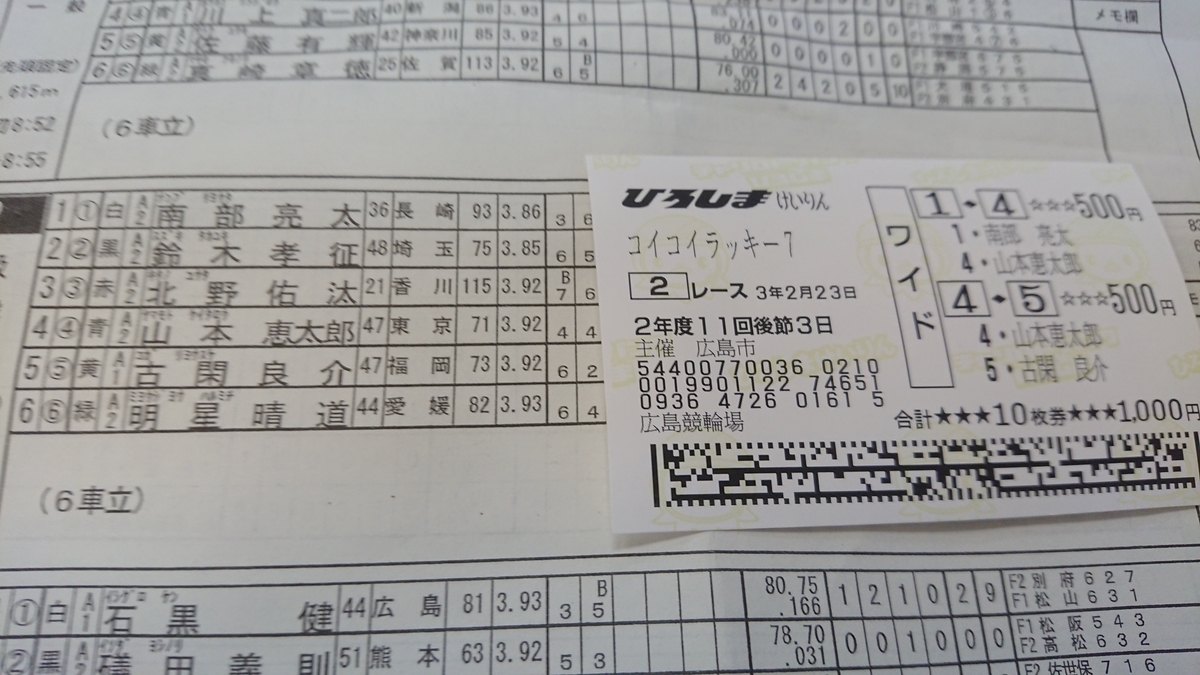 一 般
4 ④ 青 A2 川 上 真二郎 40 新 潟 86 3.93 4 6
メモ欄
5 ⑤ 黄 A2 佐 藤 有 輝 42 神奈川 85 3.92 5 4 80.42 .000 0 0 0 0 1 0
6 ⑥ 緑 A2 真 崎 章 徳 25 佐 賀 113 3.92 6 B5 76.00 .307 2 4 2 0 5 10
615m
8:52
(6車立)
8:55
1 ① 白 A2 南 部 亮 太 36 長 崎 93 3.86 3 6
2 ② 黒 A2 鈴 木 孝 征 48 埼 玉 75 3.85 6 5
3 ③ 赤 A2 北 野 佑 汰 21 香 川 115 3.92 B7 6
4 ④ 青 A2 山 本 恵太郎 47 東 京 71 3.92 4 4
5 ⑤ 黄 A1 古 閑 良 介 47 福 岡 73 3.92 6 2
6 ⑥ 緑 A2 明 星 晴 道 44 愛 媛 82 3.93 6 4
(6車立)
ひろしま けいりん
コイコイラッキー7
2 レース 3年2月23日
2年度11回後節3日
主催 広島市
54400770036 0210
0019901122 74651
0936 4726 0161 5
広島競輪場
ワイド
1-4 ☆☆☆500円
1・南部 亮太
4・山本恵太郎
4-5 ☆☆☆500円
4・山本恵太郎
5・古閑 良介
合計★★★10枚券★★★1,000円
① 白 A1 石 黒 健 44 広 島 81 3.93 3 B5 80.75 .166 1 2 1 0 2 9 F2別 府 6 2 7
F1松 山 6 3 1
② 黒 礒 田 義 則 51 熊 本 63 3.92 5 3 78.70 .031 0 0 1 0 0 0 F1松 阪 5 4 3
F2高 松 6 3 2
F2佐世保 7 1 6